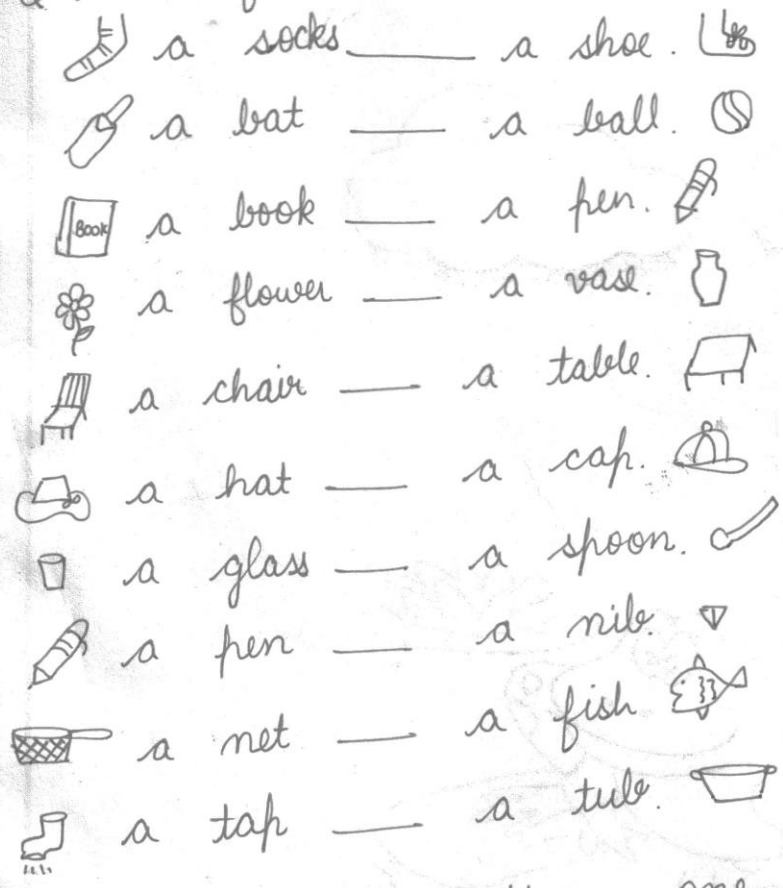 a socks ______ a shoe.
a bat ____ a ball.
BOOK a book ____ a pen.
a flower ____ a vase.
a chair ____ a table.
a hat ____ a cap.
a glass ____ a spoon.
a pen ____ a nib.
a net ____ a fish
a tap ____ a tub.